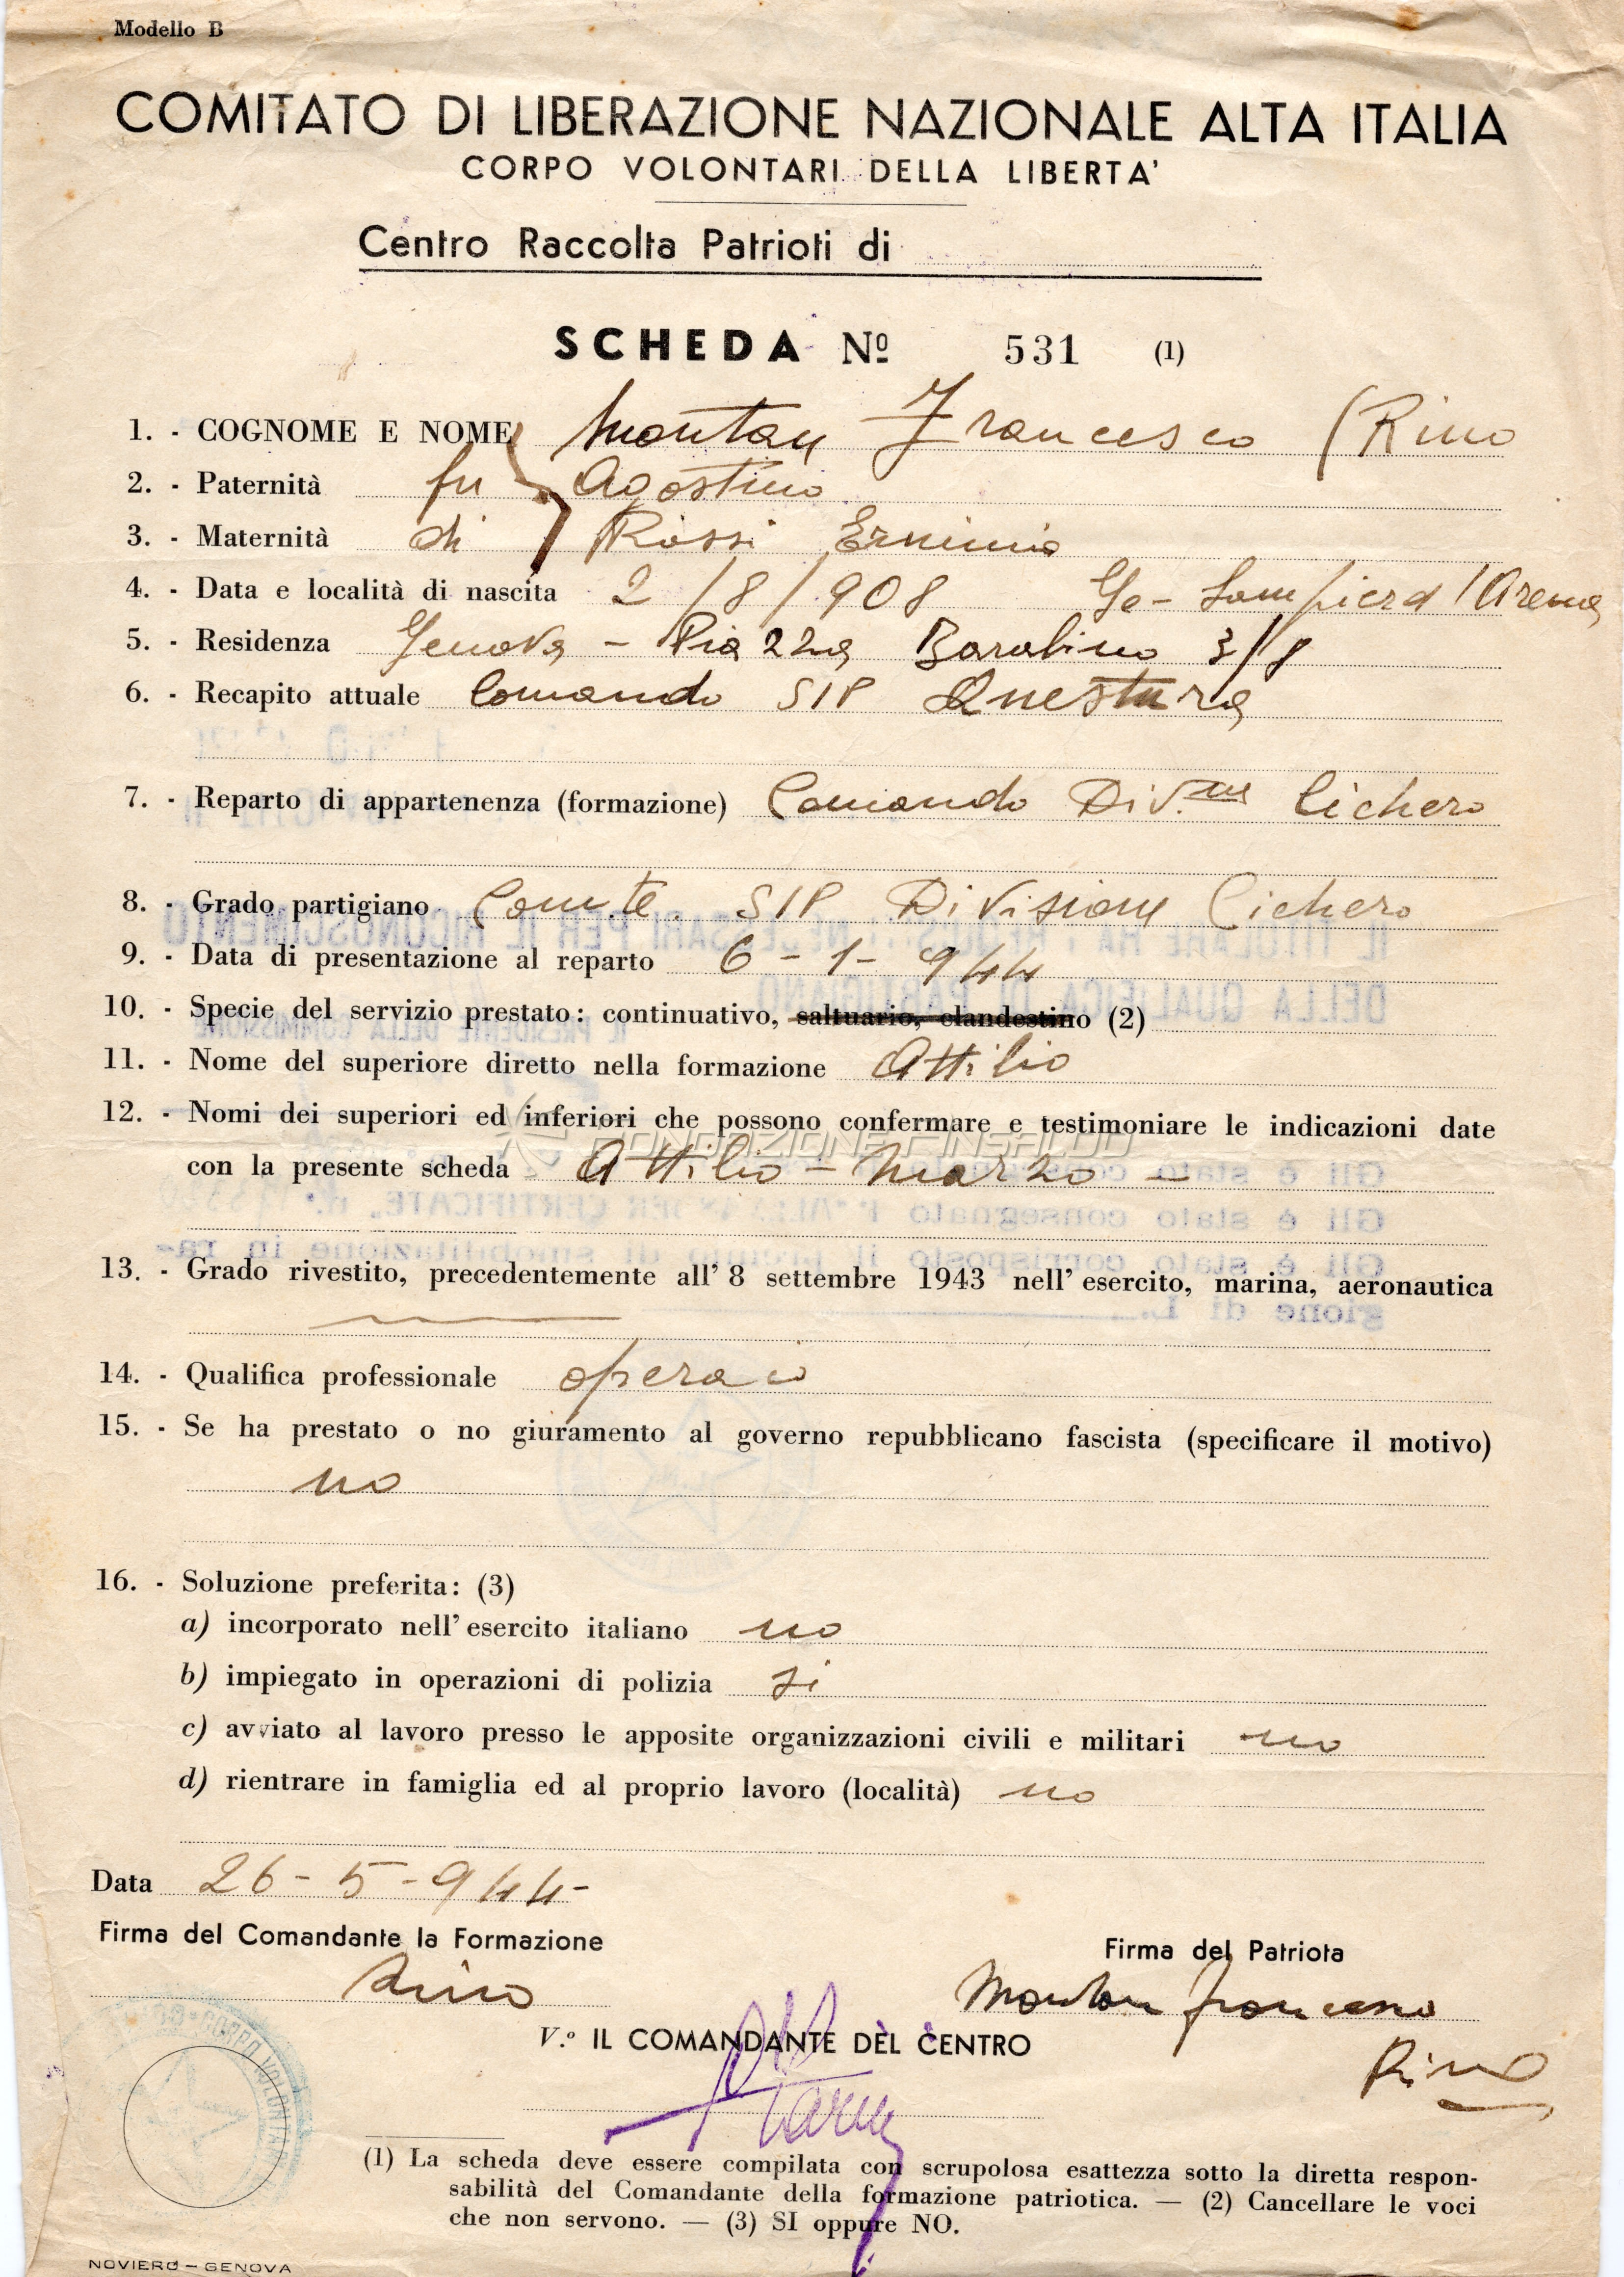 Modello B
COMITATO DI LIBERAZIONE NAZIONALE ALTA ITALIA
CORPO VOLONTARI DELLA LIBERTA'
Centro Raccolta Patrioti di
SCHEDA Nº 531 (1)
1. - COGNOME E NOME Montan Francesco (Rino
2. - Paternità fu Agostino
3. - Maternità di Rossi Erminia
4. - Data e località di nascita 2/8/908 Ge - Sampierd'Arena
5. - Residenza Genova - Piazza Barabino 3/8
6. - Recapito attuale Comando SIP Questura
7. - Reparto di appartenenza (formazione) Comando Div.ne Cichero
8. - Grado partigiano Com.te SIP Divisione Cichero
9. - Data di presentazione al reparto 6-1-944
10. - Specie del servizio prestato: continuativo, saltuario, clandestino (2)
11. - Nome del superiore diretto nella formazione Attilio
12. - Nomi dei superiori ed inferiori che possono confermare e testimoniare le indicazioni date
con la presente scheda Attilio - Marzo -
13. - Grado rivestito, precedentemente all' 8 settembre 1943 nell' esercito, marina, aeronautica
14. - Qualifica professionale operaio
15. - Se ha prestato o no giuramento al governo repubblicano fascista (specificare il motivo)
no
16. - Soluzione preferita: (3)
a) incorporato nell' esercito italiano no
b) impiegato in operazioni di polizia si
c) avviato al lavoro presso le apposite organizzazioni civili e militari no
d) rientrare in famiglia ed al proprio lavoro (località) no
Data 26-5-944-
Firma del Comandante la Formazione
Firma del Patriota
Montan Francesco
Rino
V.º IL COMANDANTE DEL CENTRO
(1) La scheda deve essere compilata con scrupolosa esattezza sotto la diretta respon-
sabilità del Comandante della formazione patriotica. — (2) Cancellare le voci
che non servono. — (3) SI oppure NO.
NOVIERO - GENOVA
FONDAZIONE ANSALDO